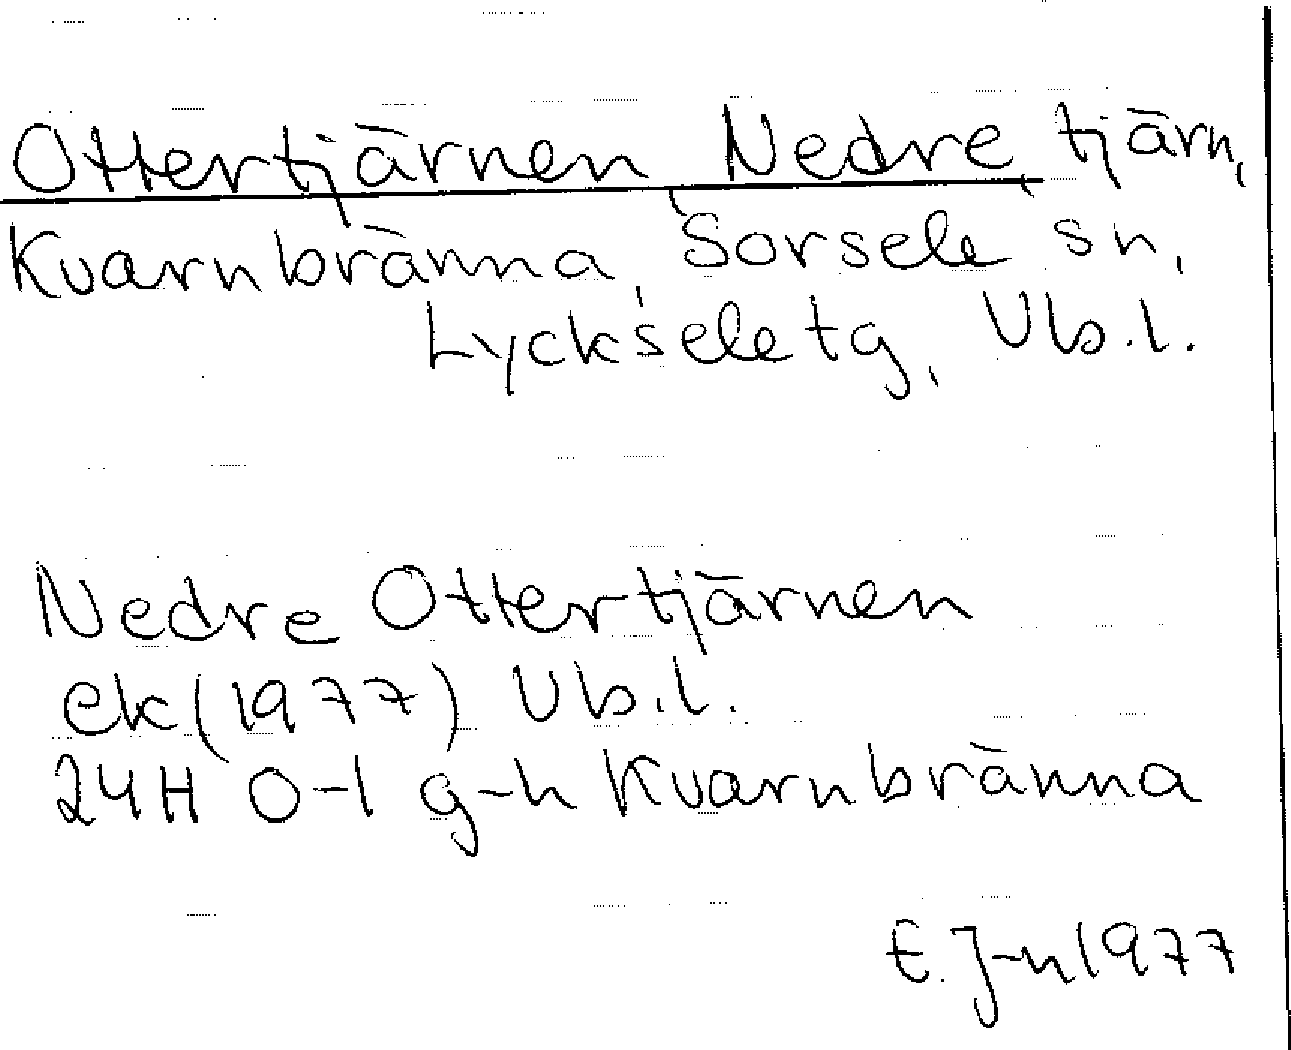 Ottertjärnen, Nedre, tjärn,
Kvarnbränna, Sorsele sn,
Lycksele tg, Vb.l.
Nedre Ottertjärnen
ek (1977) Vb.l.
24H 0-1 g-h Kvarnbränna
E. J-n 1977